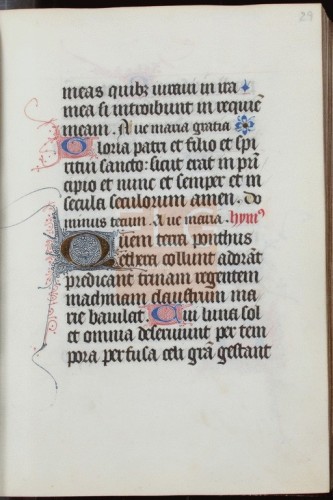 29
meas quibz iuraui in ira
mea si introibunt in requiē
meam. Aue maria gratia
Gloria patri et filio et spi
ritui sancto: sicut erat in prī
cipio et nunc et semper et in
secula seculorum amen. Do
minus tecum. Aue maria. hymꝰ
Quem terra ponthus
ethera collunt adorāt
predicant trinam regentem
machinam claustrum ma
rie baiulat. Cui luna sol
et omnia deseruiunt per tem
pora perfusa celi grā gestant